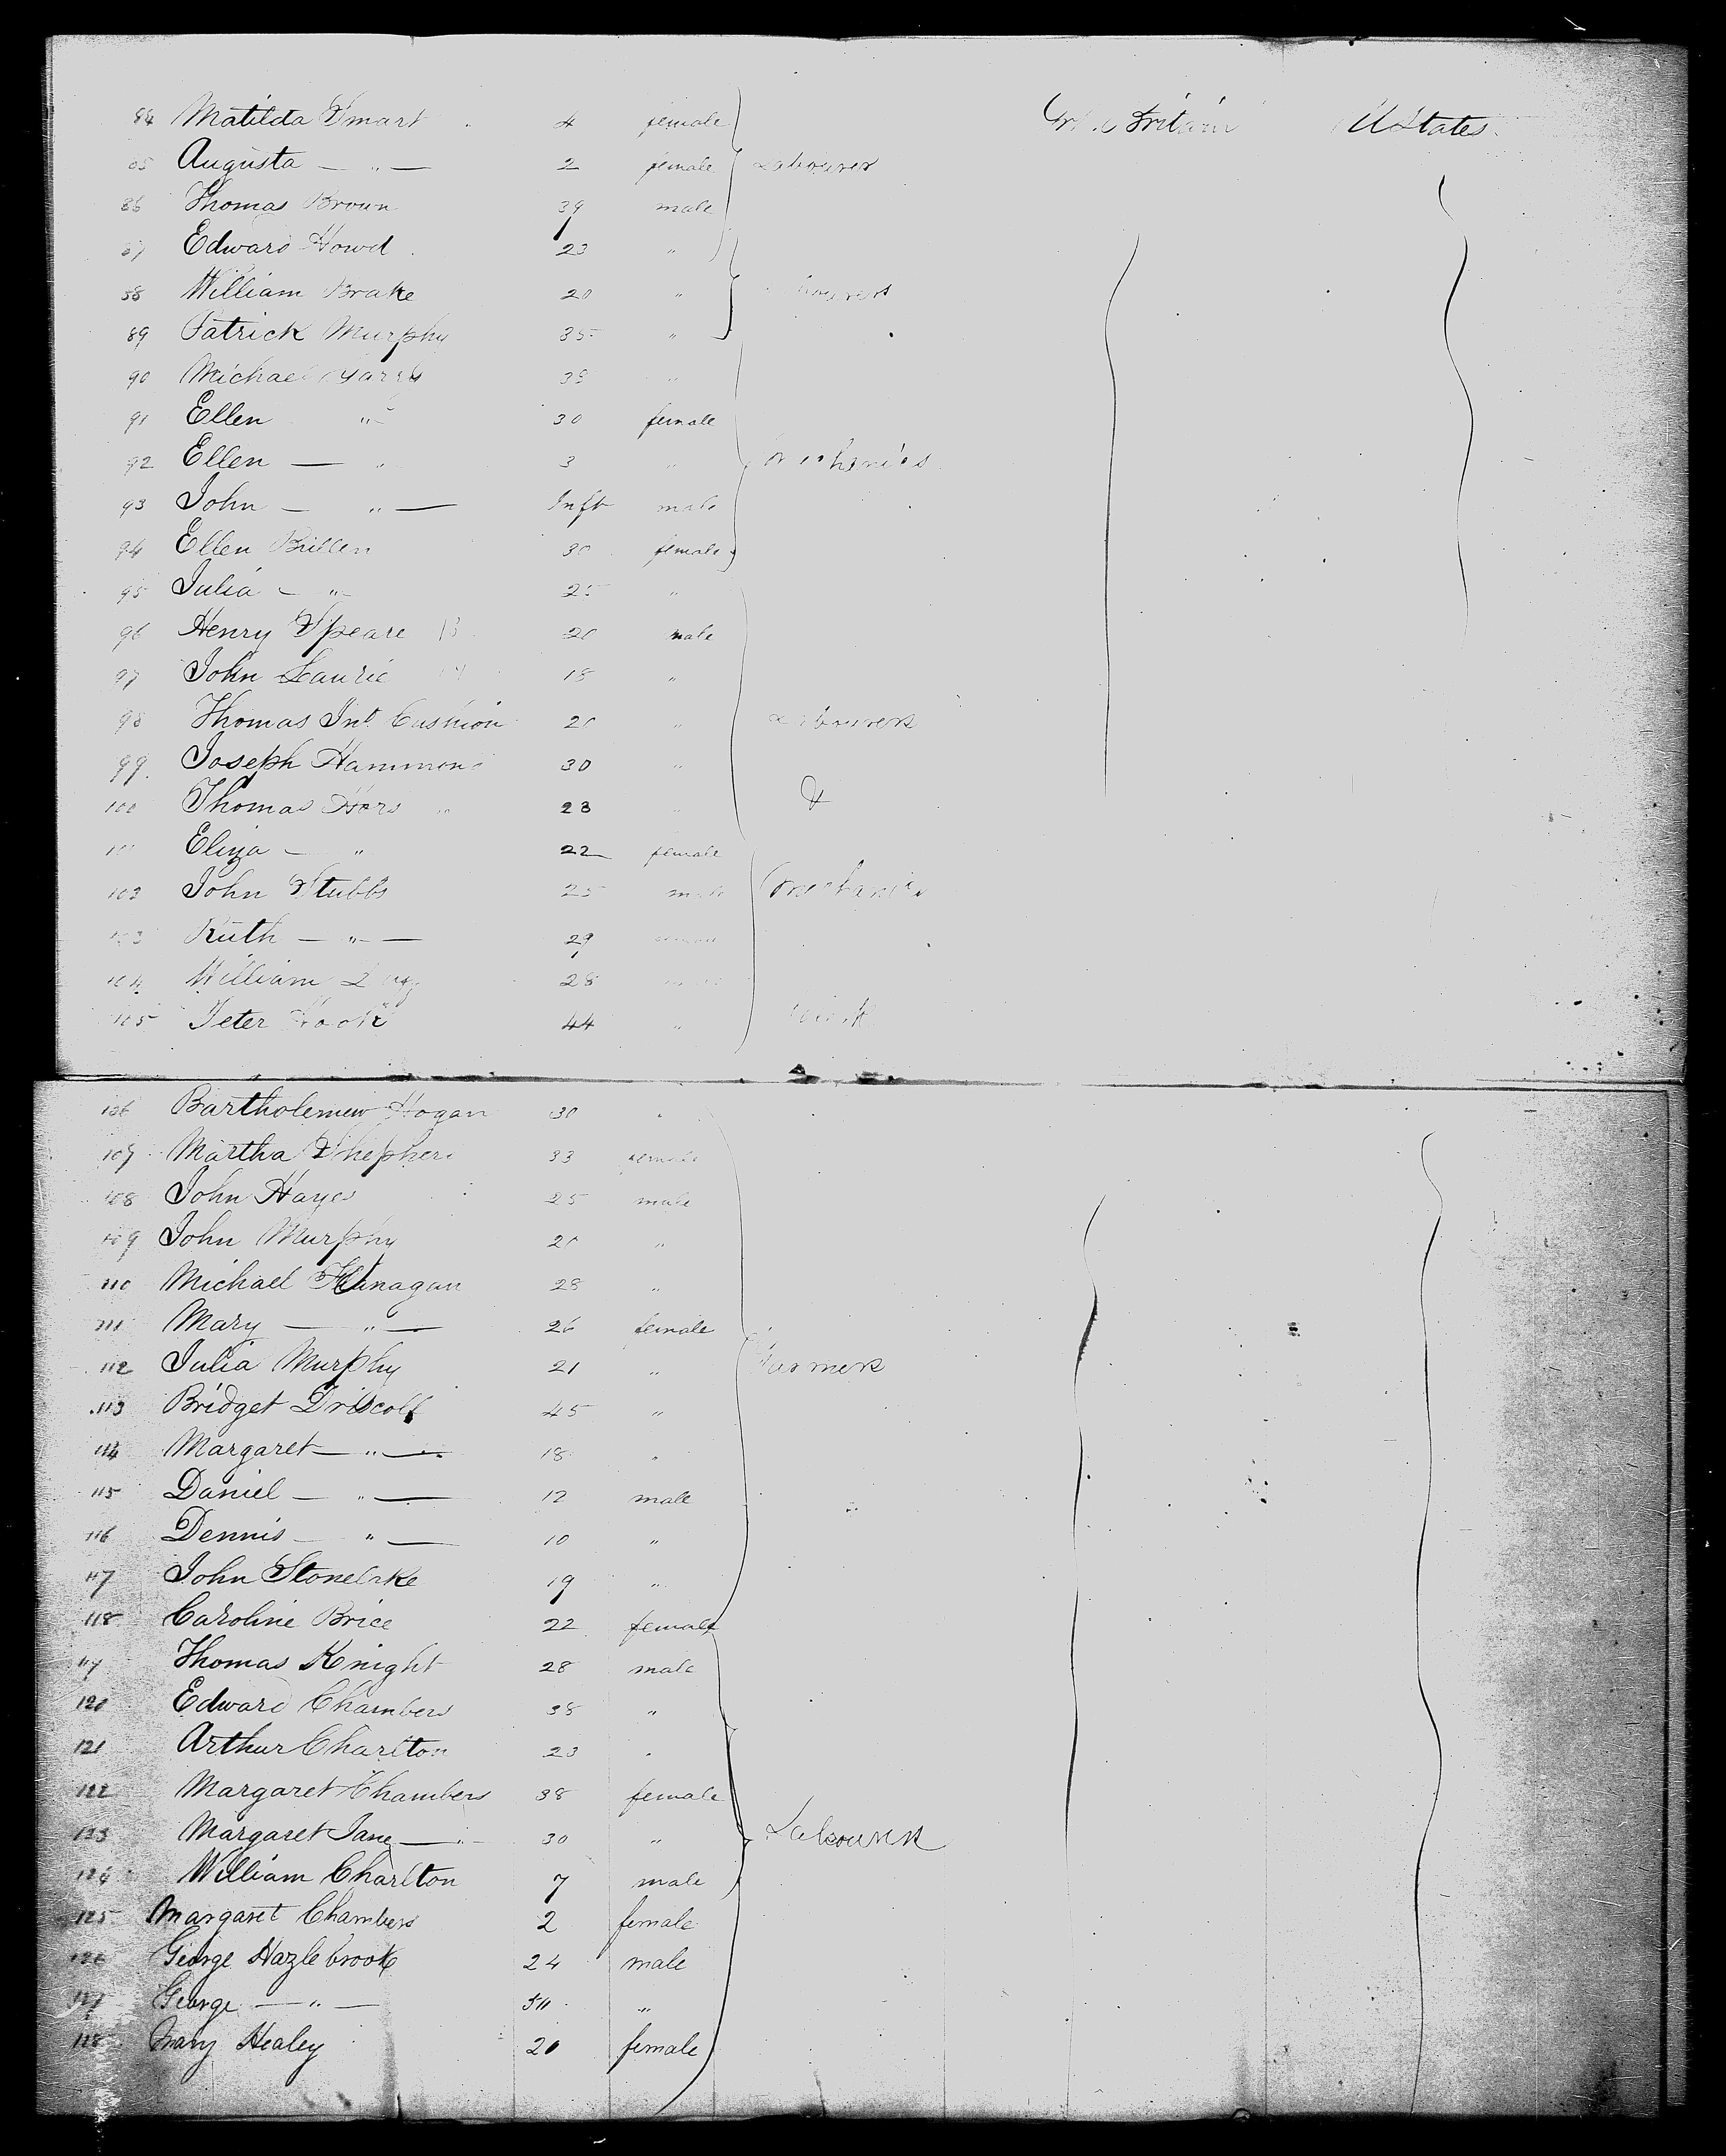 84 Matilda Smart 4 female Britain U States
85 Augusta — " — 2 female Labourers
86 Thomas Brown 39 male
87 Edward Howd 23 "
88 William Brake 20 "
89 Patrick Murphy 35 "
90 Michael 38 "
91 Ellen " 30 female
92 Ellen — " 3 " Mechanics
93 John — " — Inft male
94 Ellen Bullen 30 female
95 Julia — " — 25 "
96 Henry Speare 20 male
97 John Laurie 18 "
98 Thomas Cushion 20 " Labourers
99 Joseph Hammond 30 "
100 Thomas Hors 28 " &
101 Eliza — " 22 female
102 John Stubbs 25 male Mechanics
103 Ruth — " — 29
104 William 28
105 Peter Hook 44 "
106 Bartholemew Hogan 30 "
107 Martha Shepherd 33 female
108 John Hayes 25 male
109 John Murphy 20 "
110 Michael Flanagan 28 "
111 Mary — " — 26 female
112 Julia Murphy 21 " Farmers
113 Bridget Driscoll 45 "
114 Margaret — " — 18 "
115 Daniel — " — 12 male
116 Dennis — " — 10 "
117 John Stonelake 19 "
118 Caroline Brice 22 female
119 Thomas Knight 28 male
120 Edward Chambers 38 "
121 Arthur Charlton 23 "
122 Margaret Chambers 38 female
123 Margaret Jane — " — 30 " Labourers
124 William Charlton 7 male
125 Margaret Chambers 2 female
126 George Hazlebrook 24 male
127 George — " — "
128 Mary Healey 20 female